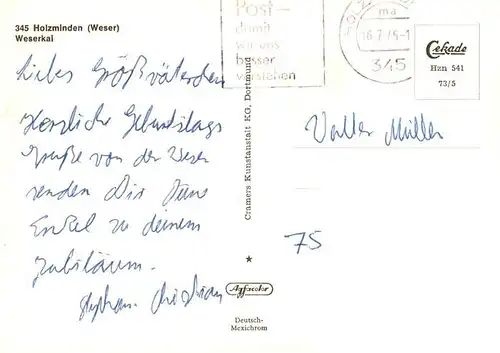 345 Holzminden (Weser)
Weserkai
Post-
damit
wir uns
besser
verstehen
345
Cekade
Hzn 541
73/5
Liebes Großväterchen
Herzliche Geburtstags
Grüße von der Weser
senden Dir Deine
Enkel zu deinem
Jubiläum.
Stephan. Christian
Müller
75
Cramers Kunstanstalt KG, Dortmund
Agfacolor
Deutsch-
Mexichrom